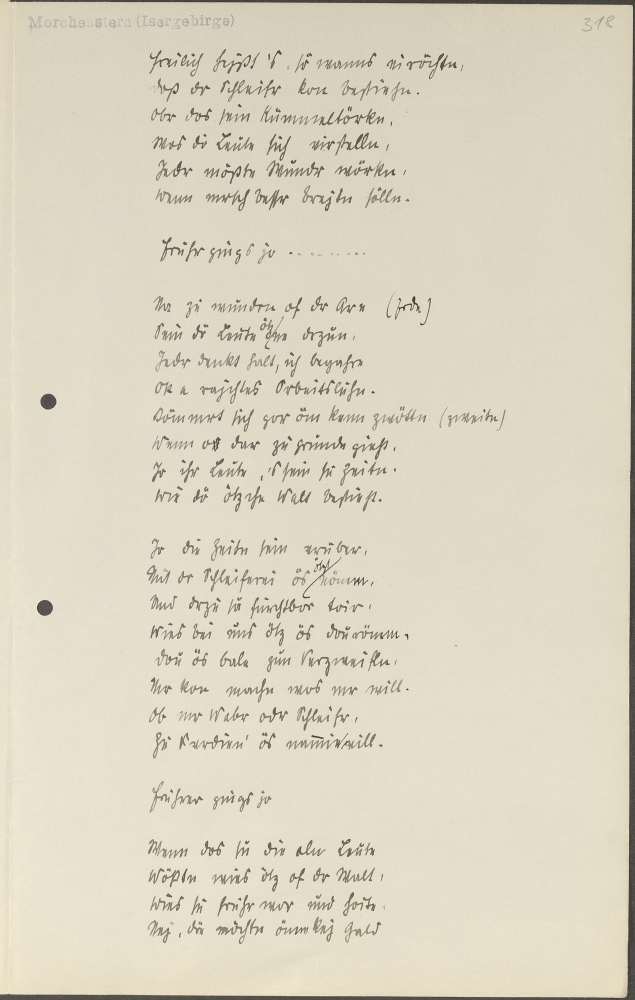 Morchenstern (Isergebirge)
318
Freilich heißt 's, sö wanns eiröchtn,
doß dr Schleifr kon bestiehn.
Obr dos sein Kümmeltörkn,
wos dö Leute sich virstelln,
Jedr mößte Wundr wörkn,
wenn mrsch bessr brejtn sölln.
Frühr gings jo .........
Na zi wundrn of dr Are (Erde)
Sein dö Leute ötz drzun,
Jedr denkt halt, ich begahre
ok a rajchtes Orbeitsluhn.
Kömmrt sich gor öm kenn zwöttn (zweiten)
Wenn ok dar zu grunde gieht,
Jo ihr Leute, 's sein su Zeitn.
wie dö ötzche Walt bestieht.
Jo die Zeitn sein vrüber,
Mit dr Schleiferei ös öm,
Und drzu sü furchtbor toir,
wies bei uns ötz ös dourömm.
dou ös bale zun Verzweifln,
Mr kon machn wos mr will.
Ob mr Wabr odr Schleifr,
Zu Verdien' ös nammievill.
Frührer gings jo
Wenn dos su die aln Leute
Wößtn wies ötz of dr Walt,
wies su frühr wor und heite.
Nej, die möchtn önnkej Gald